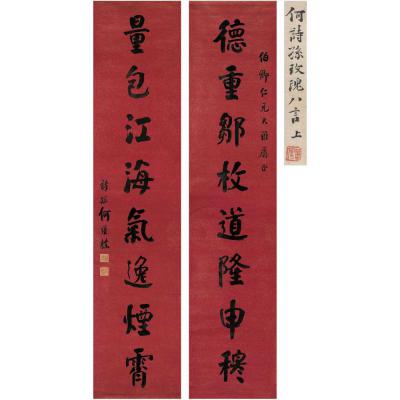 何詩孫玫瑰八言 上
德重鄒枚道隆申穆
伯卿仁兄大雅屬正
量包江海氣逸煙霄
詩孫何維樸